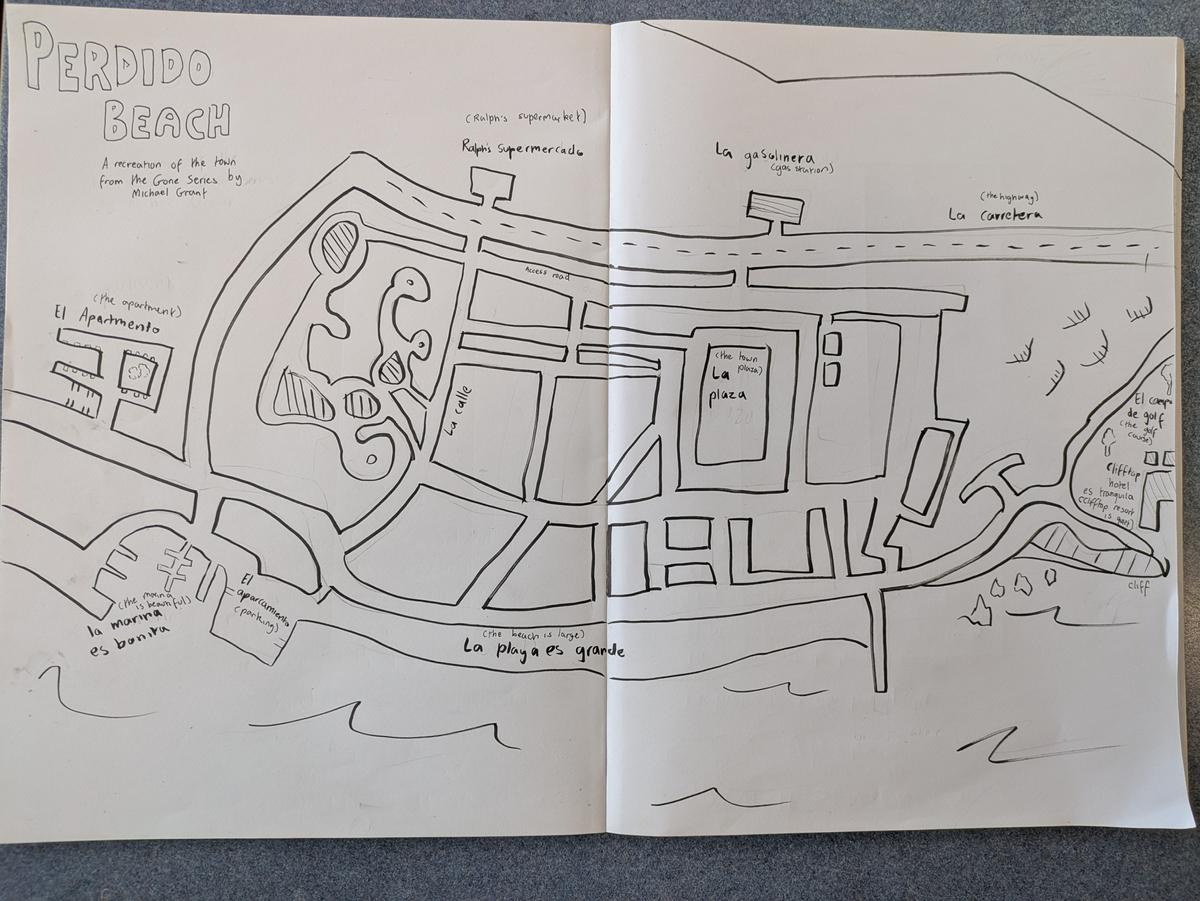 PERDIDO
BEACH
A recreation of the town
from the Gone Series by
Michael Grant
(Ralph's supermarket)
Ralph's Supermercado
La gasolinera
(gas station)
(the highway)
La carretera
Access road
(the apartment)
El Apartmento
La calle
(the town
plaza)
La
plaza
El campo
de golf
(the golf
course)
Clifftop
hotel
es tranquila
(clifftop resort
is quiet)
cliff
El
aparcamiento
(parking)
(the marina
is beautiful)
la marina
es bonita
(the beach is large)
La playa es grande